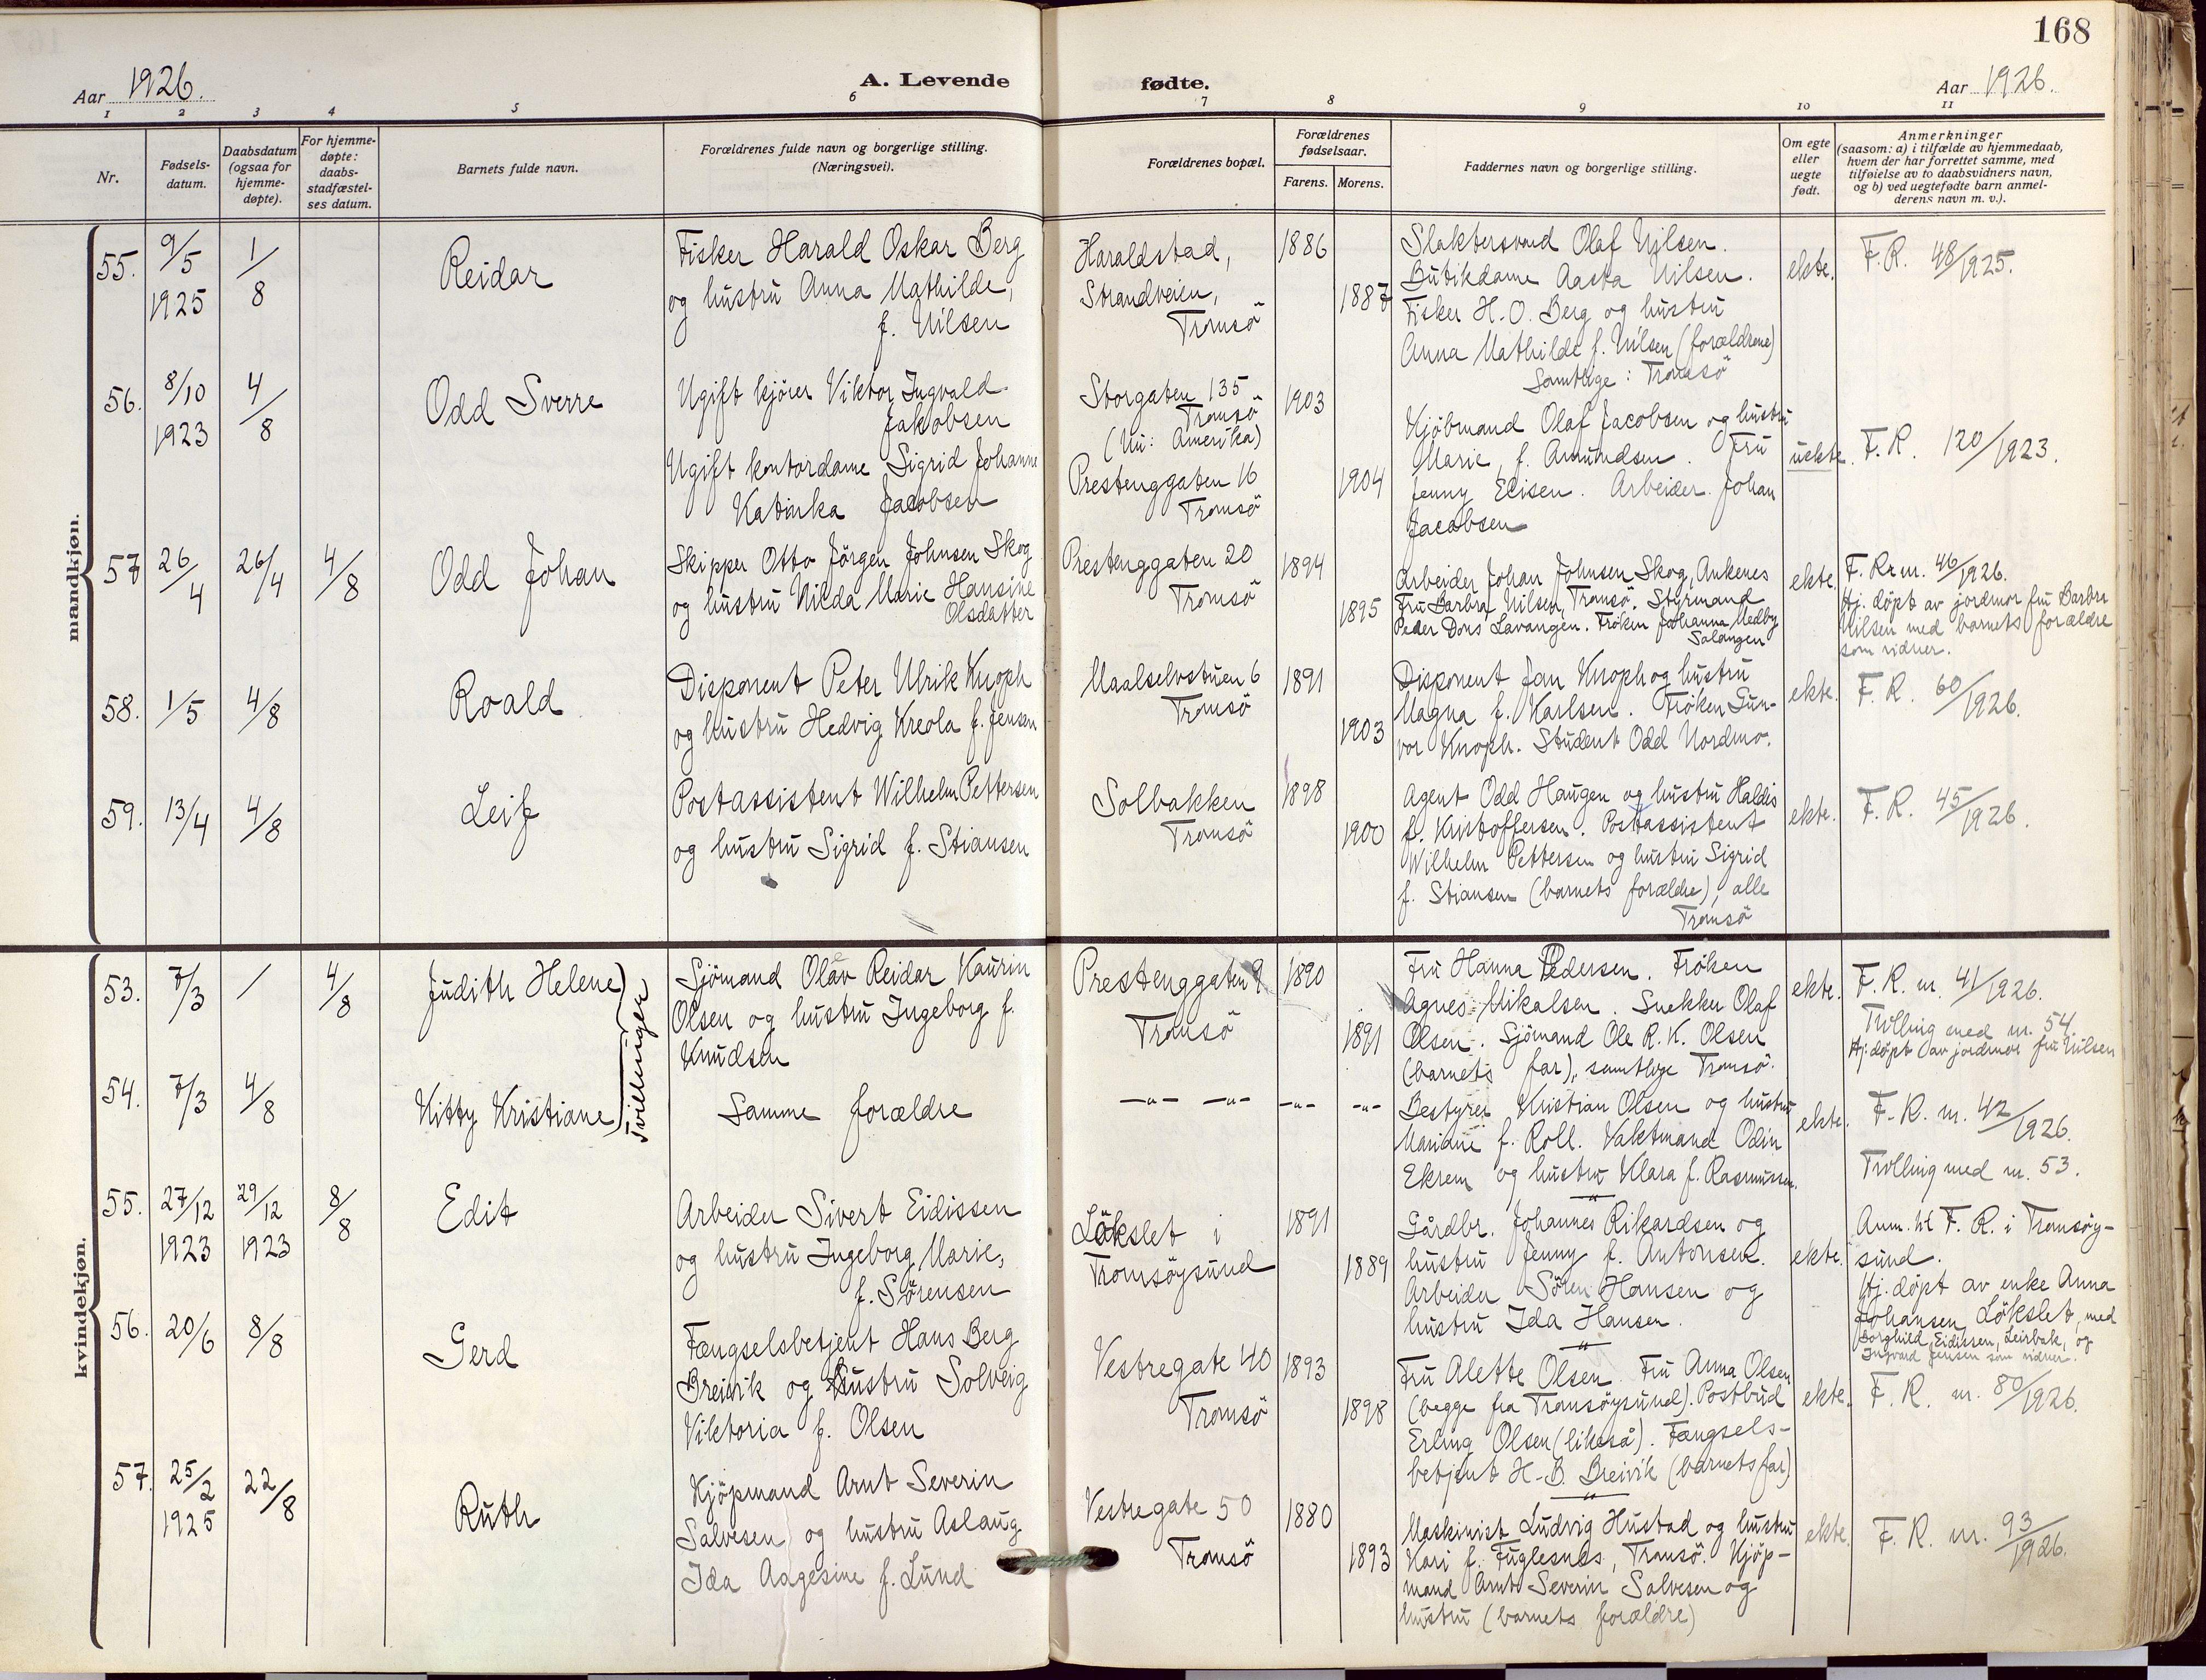 168
Aar 1926.
A. Levende fødte.
Aar 1926.
1 2 3 4 5 6 7 8 9 10 11
Nr.
Fødsels-
datum.
Daabsdatum
(ogsaa for
hjemme-
døpte).
For hjemme-
døpte:
daabs-
stadfæstel-
ses datum.
Barnets fulde navn.
Forældrenes fulde navn og borgerlige stilling.
(Næringsvei).
Forældrenes bopæl.
Forældrenes
fødselsaar.
Farens. Morens.
Faddernes navn og borgerlige stilling.
Om egte
eller
uegte
født.
Anmerkninger
(saasom: a) i tilfælde av hjemmedaab,
hvem der har forrettet samme, med
tilføielse av to daabsvidners navn,
og b) ved uegtefødte barn anmel-
derens navn m. v.).
mandkjøn.
55.
9/5
1925
1/8
Reidar
Fisker Harald Oskar Berg
og hustru Anna Mathilde,
f. Nilsen
Haraldstad,
Strandveien,
Tromsö
1886
1887
Slaktersvend Olaf Nilsen.
Butikdame Aasta Nilsen.
Fisker H. O. Berg og hustru
Anna Mathilde f. Nilsen (forældrene)
Samtlige: Tromsö
ekte.
F. R. 48/1925.
56.
8/10
1923
4/8
Odd Sverre
Ugift kjører Viktor Ingvald
Jakobsen
Ugift kontordame Sigrid Johanne
Katinka Jacobsen
Storgaten 135
Tromsö
(Nu: Amerika)
Prestenggaten 16
Tromsö
1903
1904
Kjöbmand Olaf Jacobsen og hustru
Marie, f. Amundsen. Fru
Jenny Elisen. Arbeider Johan
Jacobsen
uekte.
F. R. 120/1923.
57
26/4
26/4
4/8
Odd Johan
Skipper Otto Jörgen Johnsen Skog
og hustru Nilda Marie Hansine
Olsdatter
Prestenggaten 20
Tromsö
1894
1895
Arbeider Johan Johnsen Skog, Ankenes
Fru Barbra Nilsen, Tromsö. Styrmand
Peder Dons Lavangen. Frøken Johanna Medby
Salangen
ekte.
F. R. nr. 46/1926.
Hj. døpt av jordmor fru Barbra
Nilsen med barnets forældre
som vidner.
58.
1/5
4/8
Roald
Disponent Peter Ulrik Knoph
og hustru Hedvig Kreola f. Jensen
Maalselvstuen 6
Tromsö
1891
1903
Disponent Jan Knoph og hustru
Magna f. Karlsen. Frøken Gun-
vor Knoph. Student Odd Nordmo.
ekte.
F. R. 60/1926.
59.
13/4
4/8
Leif
Postassistent Wilhelm Pettersen
og hustru Sigrid f. Stiansen
Solbakken
Tromsö
1898
1900
Agent Odd Haugen og hustru Haldis
f. Kristoffersen. Postassistent
Wilhelm Pettersen og hustru Sigrid
f. Stiansen (barnets forældre), alle
Tromsö
ekte.
F. R. 45/1926.
kvindekjøn.
53.
7/3
/
4/8
Judith Helene
Tvillinger
Sjömand Olav Reidar Kaurin
Olsen og hustru Ingeborg f.
Knudsen
Prestenggaten 9
Tromsö
1890
1891
Fru Hanna Pedersen. Frøken
Agnes Mikalsen. Snekker Olaf
Olsen. Sjömand Ole R. K. Olsen
(barnets far), samtlige Tromsö.
ekte.
F. R. nr. 41/1926.
Tvilling med nr. 54.
Hj. døpt av jordmor fru Nilsen
54.
7/3
4/8
Kitty Kristiane
Samme forældre
-"- -"- -"- -"-
Bestyrer Kristian Olsen og hustru
Mariane f. Roll. Vaktmand Odin
Ekrem og hustru Klara f. Rasmussen.
ekte.
F. R. nr. 42/1926.
Tvilling med nr. 53.
55.
27/12
1923
29/12
1923
8/8
Edit
Arbeider Sivert Eidissen
og hustru Ingeborg Marie,
f. Sørensen
Lökslet i
Tromsöysund
1891
1889
Gårdbr. Johannes Rikardsen og
hustru Jenny f. Antonsen.
Arbeider Sören Hansen og
hustru Ida Hansen.
ekte.
Anm. til F. R. i Tromsöy-
sund.
Hj. döpt av enke Anna
Johansen Lökslet, med
Borghild Eidissen, Leirbak, og
Ingvard Jensen som vidner.
56.
20/6
8/8
Gerd
Fængselsbetjent Hans Berg
Breivik og hustru Solveig
Viktoria f. Olsen
Vestregate 40
Tromsö
1893
1898
Fru Alette Olsen. Fru Anna Olsen
(begge fra Tromsöysund). Postbud
Erling Olsen (likeså). Fængsels-
betjent H. B. Breivik (barnets far)
ekte.
F. R. nr. 80/1926.
57.
25/2
1925
22/8
Ruth
Kjöpmand Arnt Severin
Salvesen og hustru Aslaug
Ida Aagesine f. Lund
Vestregate 50
Tromsö
1880
1893
Maskinist Ludvig Hustad og hustru
Kari f. Fuglesnes, Tromsö. Kjöp-
mand Arnt Severin Salvesen og
hustru (barnets forældre)
ekte.
F. R. nr. 93/1926.